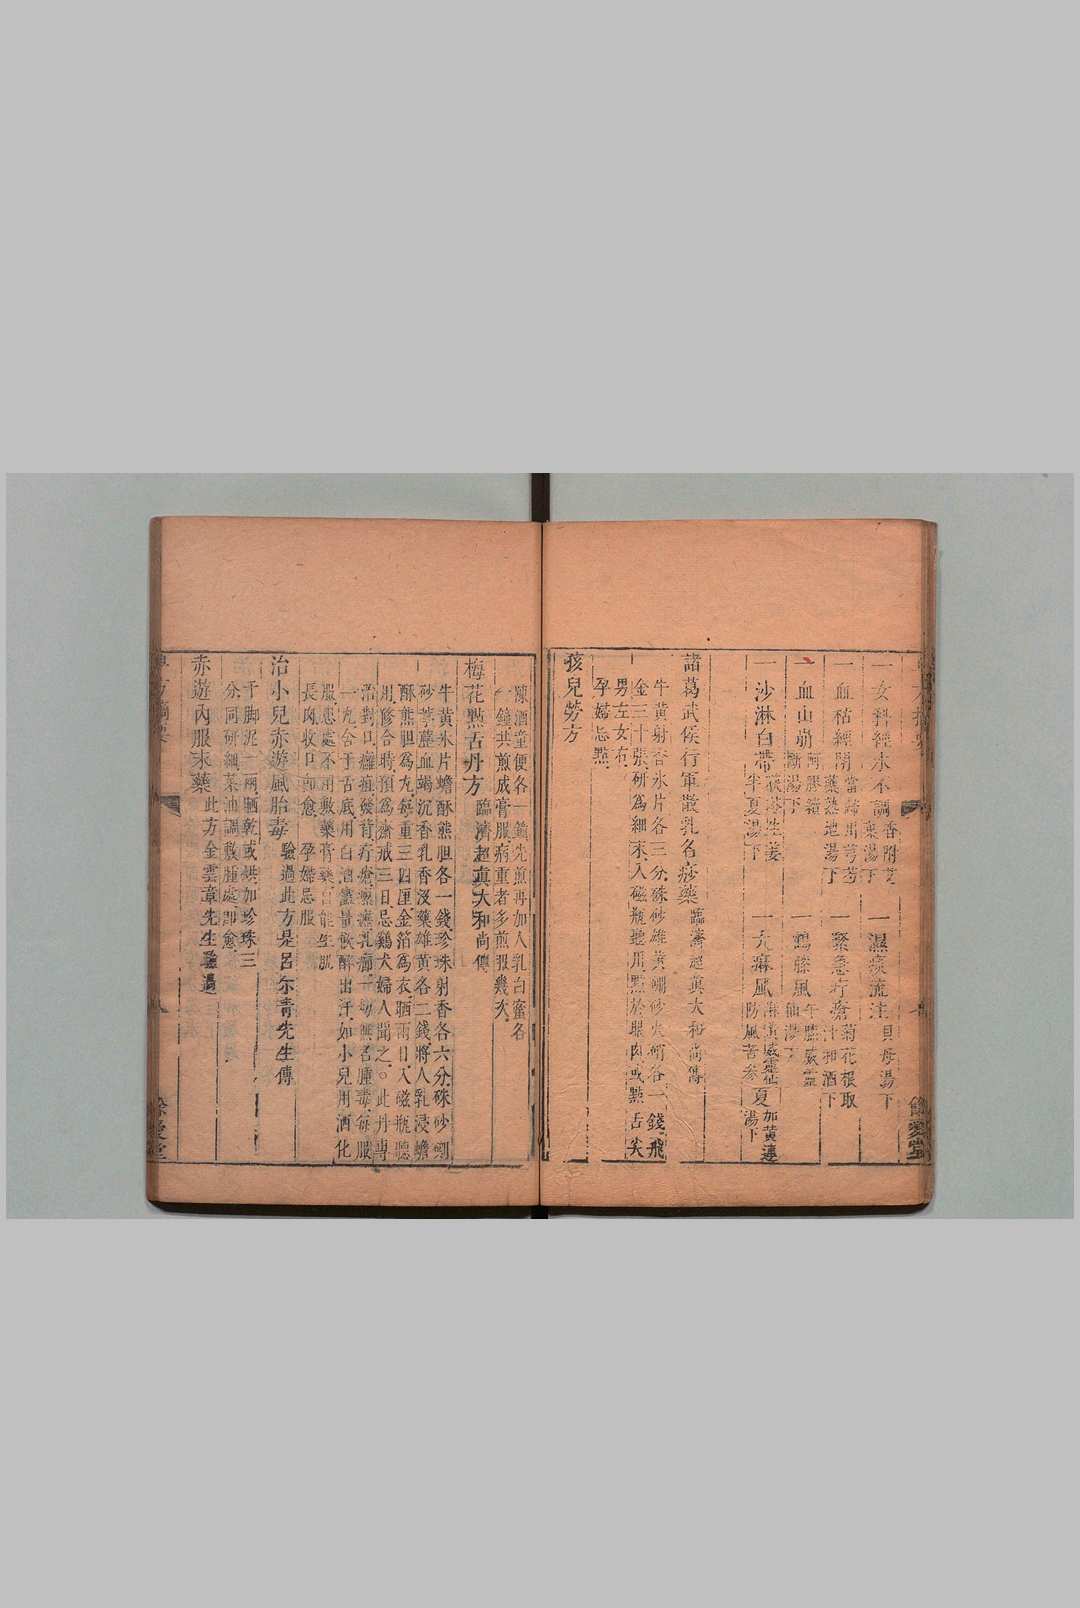 一女科經水不調 香附艾葉湯下
一濕痰流注 貝母湯下
一血枯經閉 當歸川芎芍藥熟地湯下
一緊急疔瘡 菊花根取汁和酒下
一血山崩 阿膠 湯下
一鶴膝風 牛膝威靈仙湯下
一沙淋白帶 茯苓生姜半夏湯下
一大麻風 防風苦參 湯下
諸葛武侯行軍散乳名痧藥 臨濟超真大和尚傳
牛黄射香氷片各三分硃砂雄黄硼砂火硝各一錢飛
金三十張研為細末入磁瓶聽用點於眼肉或點舌尖
男左女右
孕婦忌點
孩兒勞方
陳酒童便各一鐘先煎再加人乳白蜜各
一鐘共煎成膏服病重者多煎服幾次
梅花點舌丹方 臨濟超真大和尚傳
牛黄氷片蟾酥熊胆各一錢珍珠射香各六分硃砂硼
砂葶藶血竭沉香乳香沒藥雄黄各二錢將人乳浸蟾
酥熊胆為丸每重三四厘金箔為衣晒兩日入磁瓶聽
用修合時預為齋戒三日忌鷄犬婦人聞之○此丹專
治對口癰疽發背疔瘡 乳癤一切無名腫毒每服
一丸含于舌底用白酒盡量飲醉出汗如小兒用酒化
服患處不用敷藥膏藥自能生肌
長肉收口即愈 孕婦忌服
治小兒赤游風胎毒 驗過此方是呂尔青先生傳
干脚泥一兩晒乾或烘加珍珠三
分同研細菜油調敷腫處即愈
赤遊內服末藥 此方金雲章先生驗過